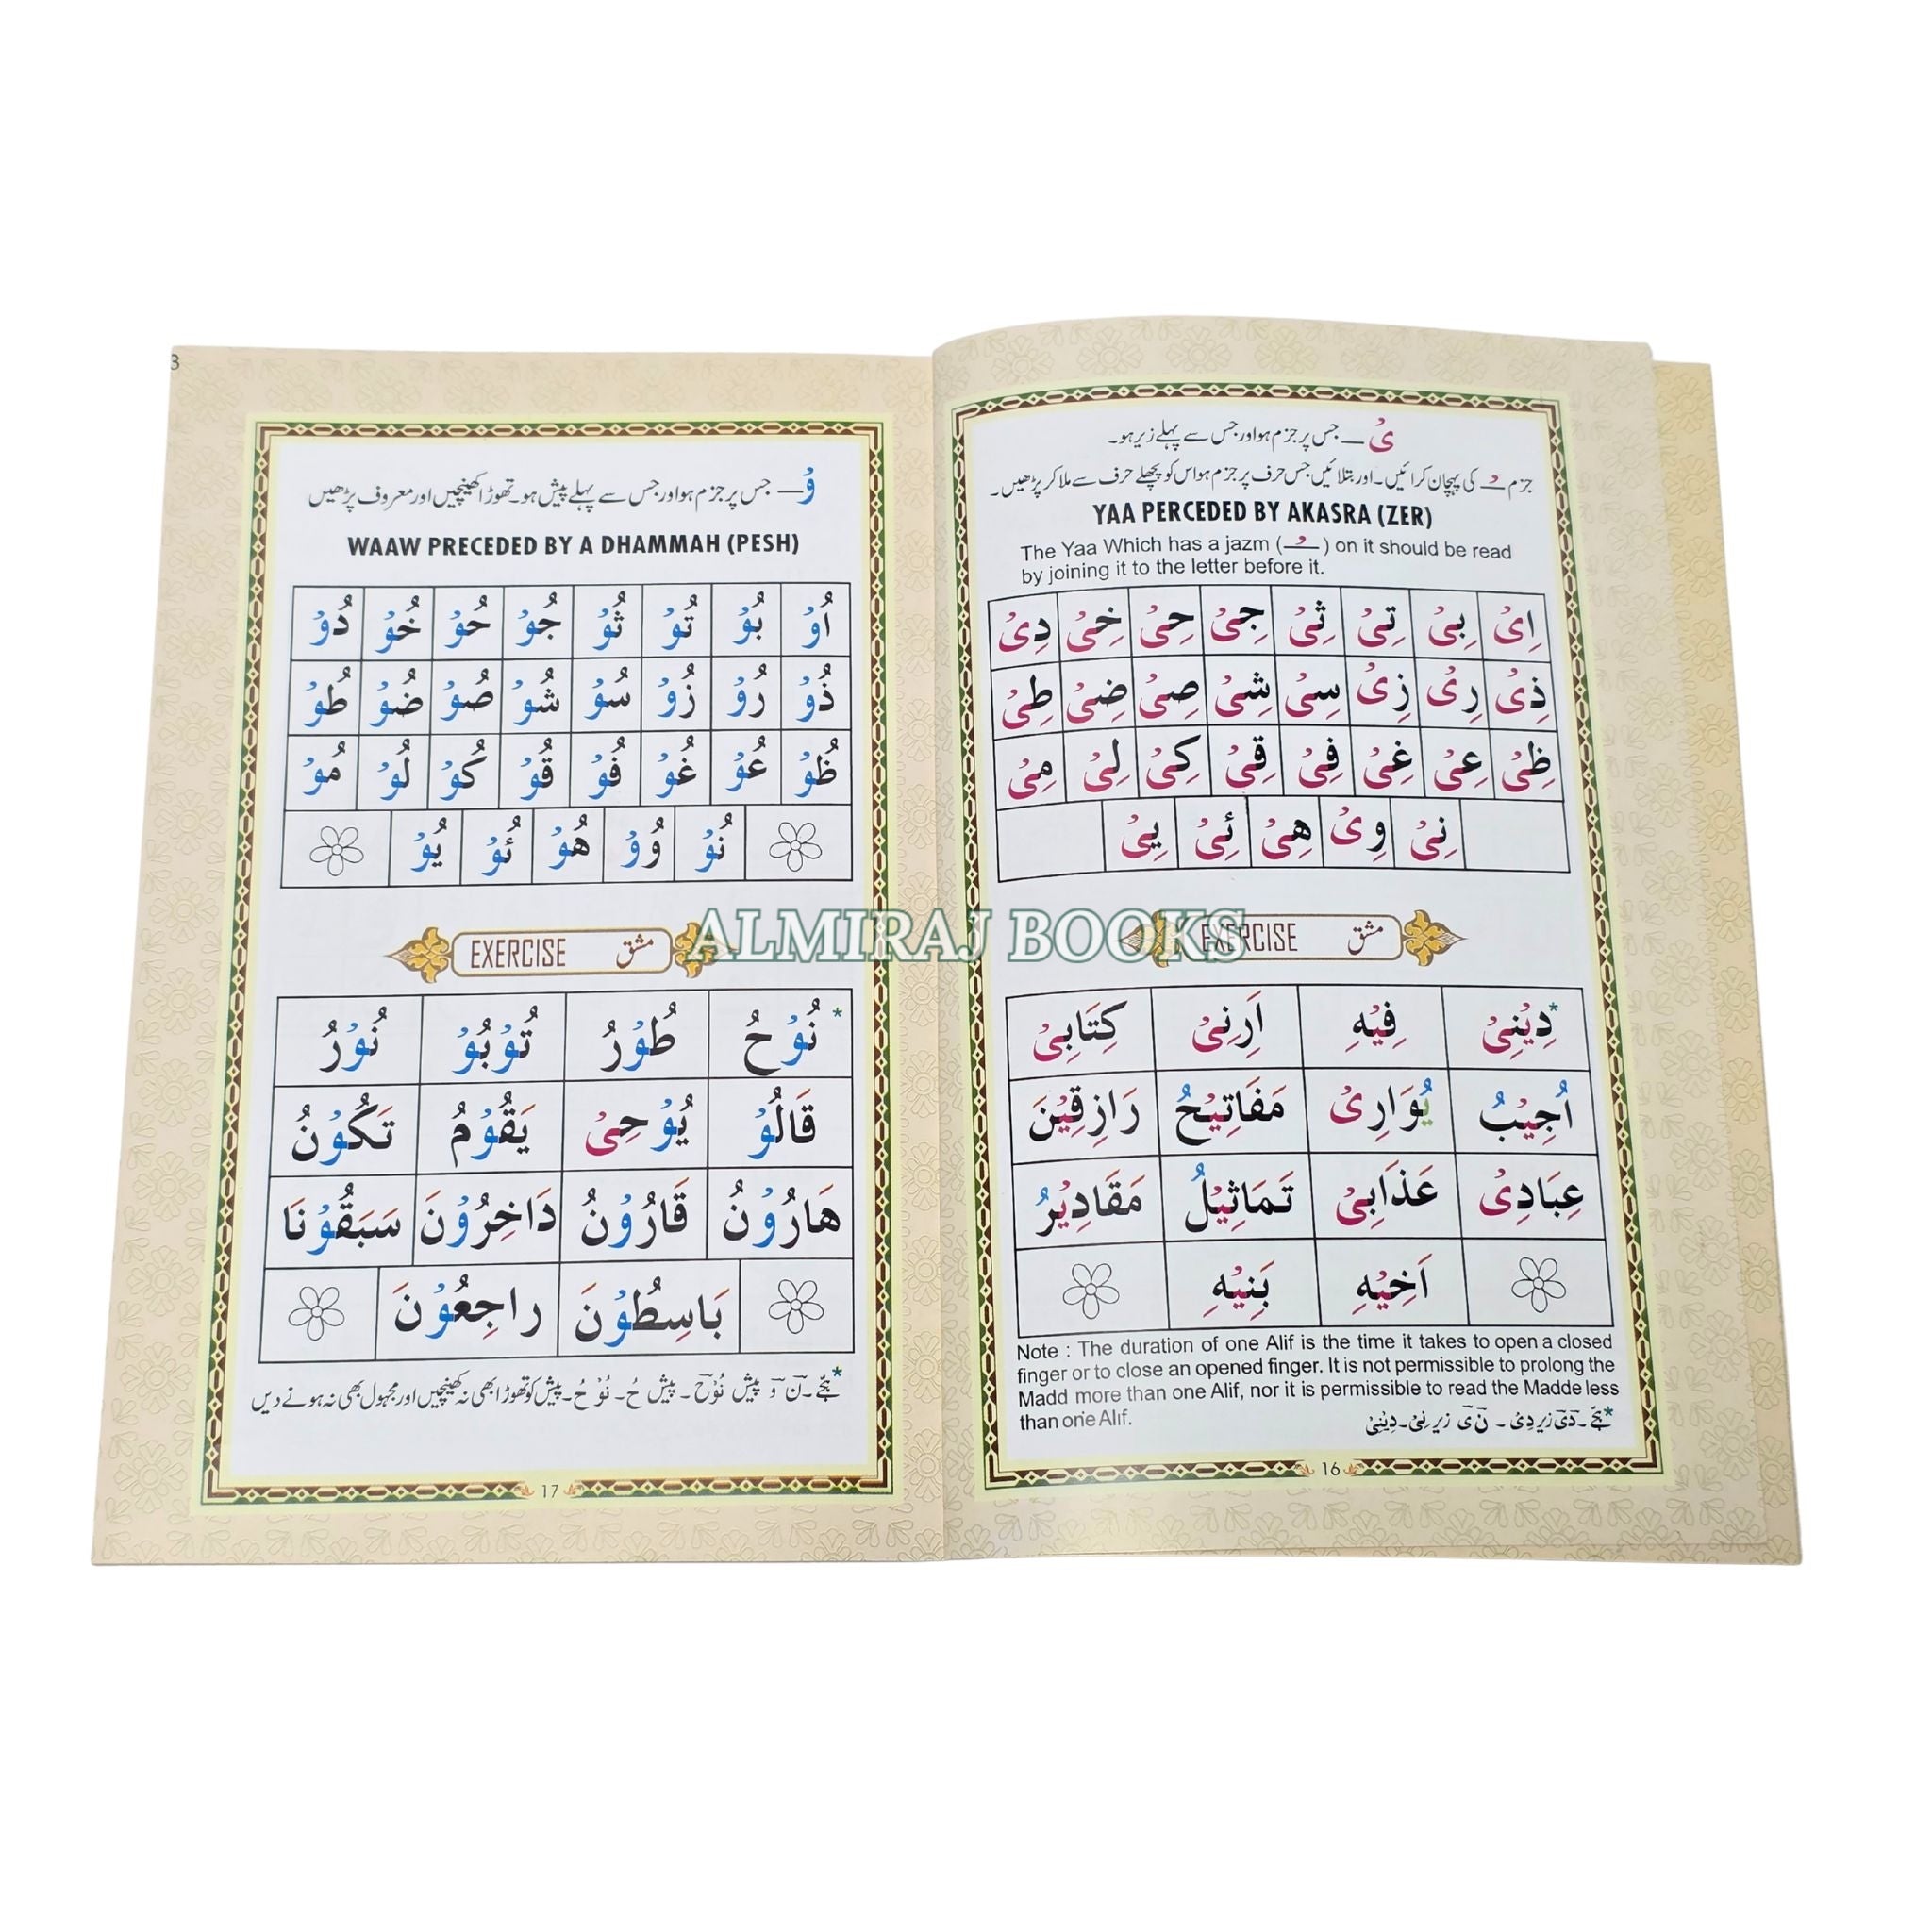 ىْ — جس پر جزم ہو اور جس سے پہلے زیر ہو۔
جزم ـْـ کی پہچان کرائیں۔ اور بتلائیں جس حرف پر جزم ہو اس کو پچھلے حرف سے ملا کر پڑھیں۔
YAA PERCEDED BY AKASRA (ZER)
The Yaa Which has a jazm (ـْـ) on it should be read
by joining it to the letter before it.
اِىْ بِىْ تِىْ ثِىْ جِىْ حِىْ خِىْ دِىْ
ذِىْ رِىْ زِىْ سِىْ شِىْ صِىْ ضِىْ طِىْ
ظِىْ عِىْ غِىْ فِىْ قِىْ كِىْ لِىْ مِىْ
نِىْ وِىْ هِىْ ئِىْ يِىْ
EXERCISE مشق
*دِيْنِىْ فِيْهِ اَرِنِىْ كِتَابِىْ
اُجِيْبُ يُوَارِىْ مَفَاتِيْحُ رَازِقِيْنَ
عِبَادِىْ عَذَابِىْ تَمَاثِيْلُ مَقَادِيْرُ
اَخِيْهِ بَنِيْهِ
Note : The duration of one Alif is the time it takes to open a closed
finger or to close an opened finger. It is not permissible to prolong the
Madd more than one Alif, nor it is permissible to read the Madde less
than one Alif.
*ہجّے۔ دَىْ زیر دِىْ ۔ نَ ىْ زیر نِىْ۔ دِيْنِىْ
16
3
وْ — جس پر جزم ہو اور جس سے پہلے پیش ہو۔ تھوڑا کھینچیں اور معروف پڑھیں
WAAW PRECEDED BY A DHAMMAH (PESH)
اُوْ بُوْ تُوْ ثُوْ جُوْ حُوْ خُوْ دُوْ
ذُوْ رُوْ زُوْ سُوْ شُوْ صُوْ ضُوْ طُوْ
ظُوْ عُوْ غُوْ فُوْ قُوْ كُوْ لُوْ مُوْ
نُوْ وُوْ هُوْ ئُوْ يُوْ
EXERCISE مشق
*نُوْحُ طُوْرُ تُوْبُوْ نُوْرُ
قَالُوْ يُوْحِىْ يَقُوْمُ تَكُوْنُ
هَارُوْنُ قَارُوْنُ دَاخِرُوْنَ سَبَقُوْنَا
بَاسِطُوْنَ راجِعُوْنَ
*ہجّے۔ نَ وَ پیش نُوْحَ ۔ پیش حُ۔ نُوْحُ۔ پیش کو تھوڑا بھی نہ کھینچیں اور مجہول بھی نہ ہونے دیں
17
ALMIRAJ BOOKS